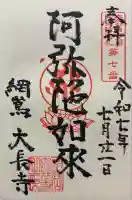 奉拝
令和七年
七月廿一日
阿弥陀如来
網島
大長寺